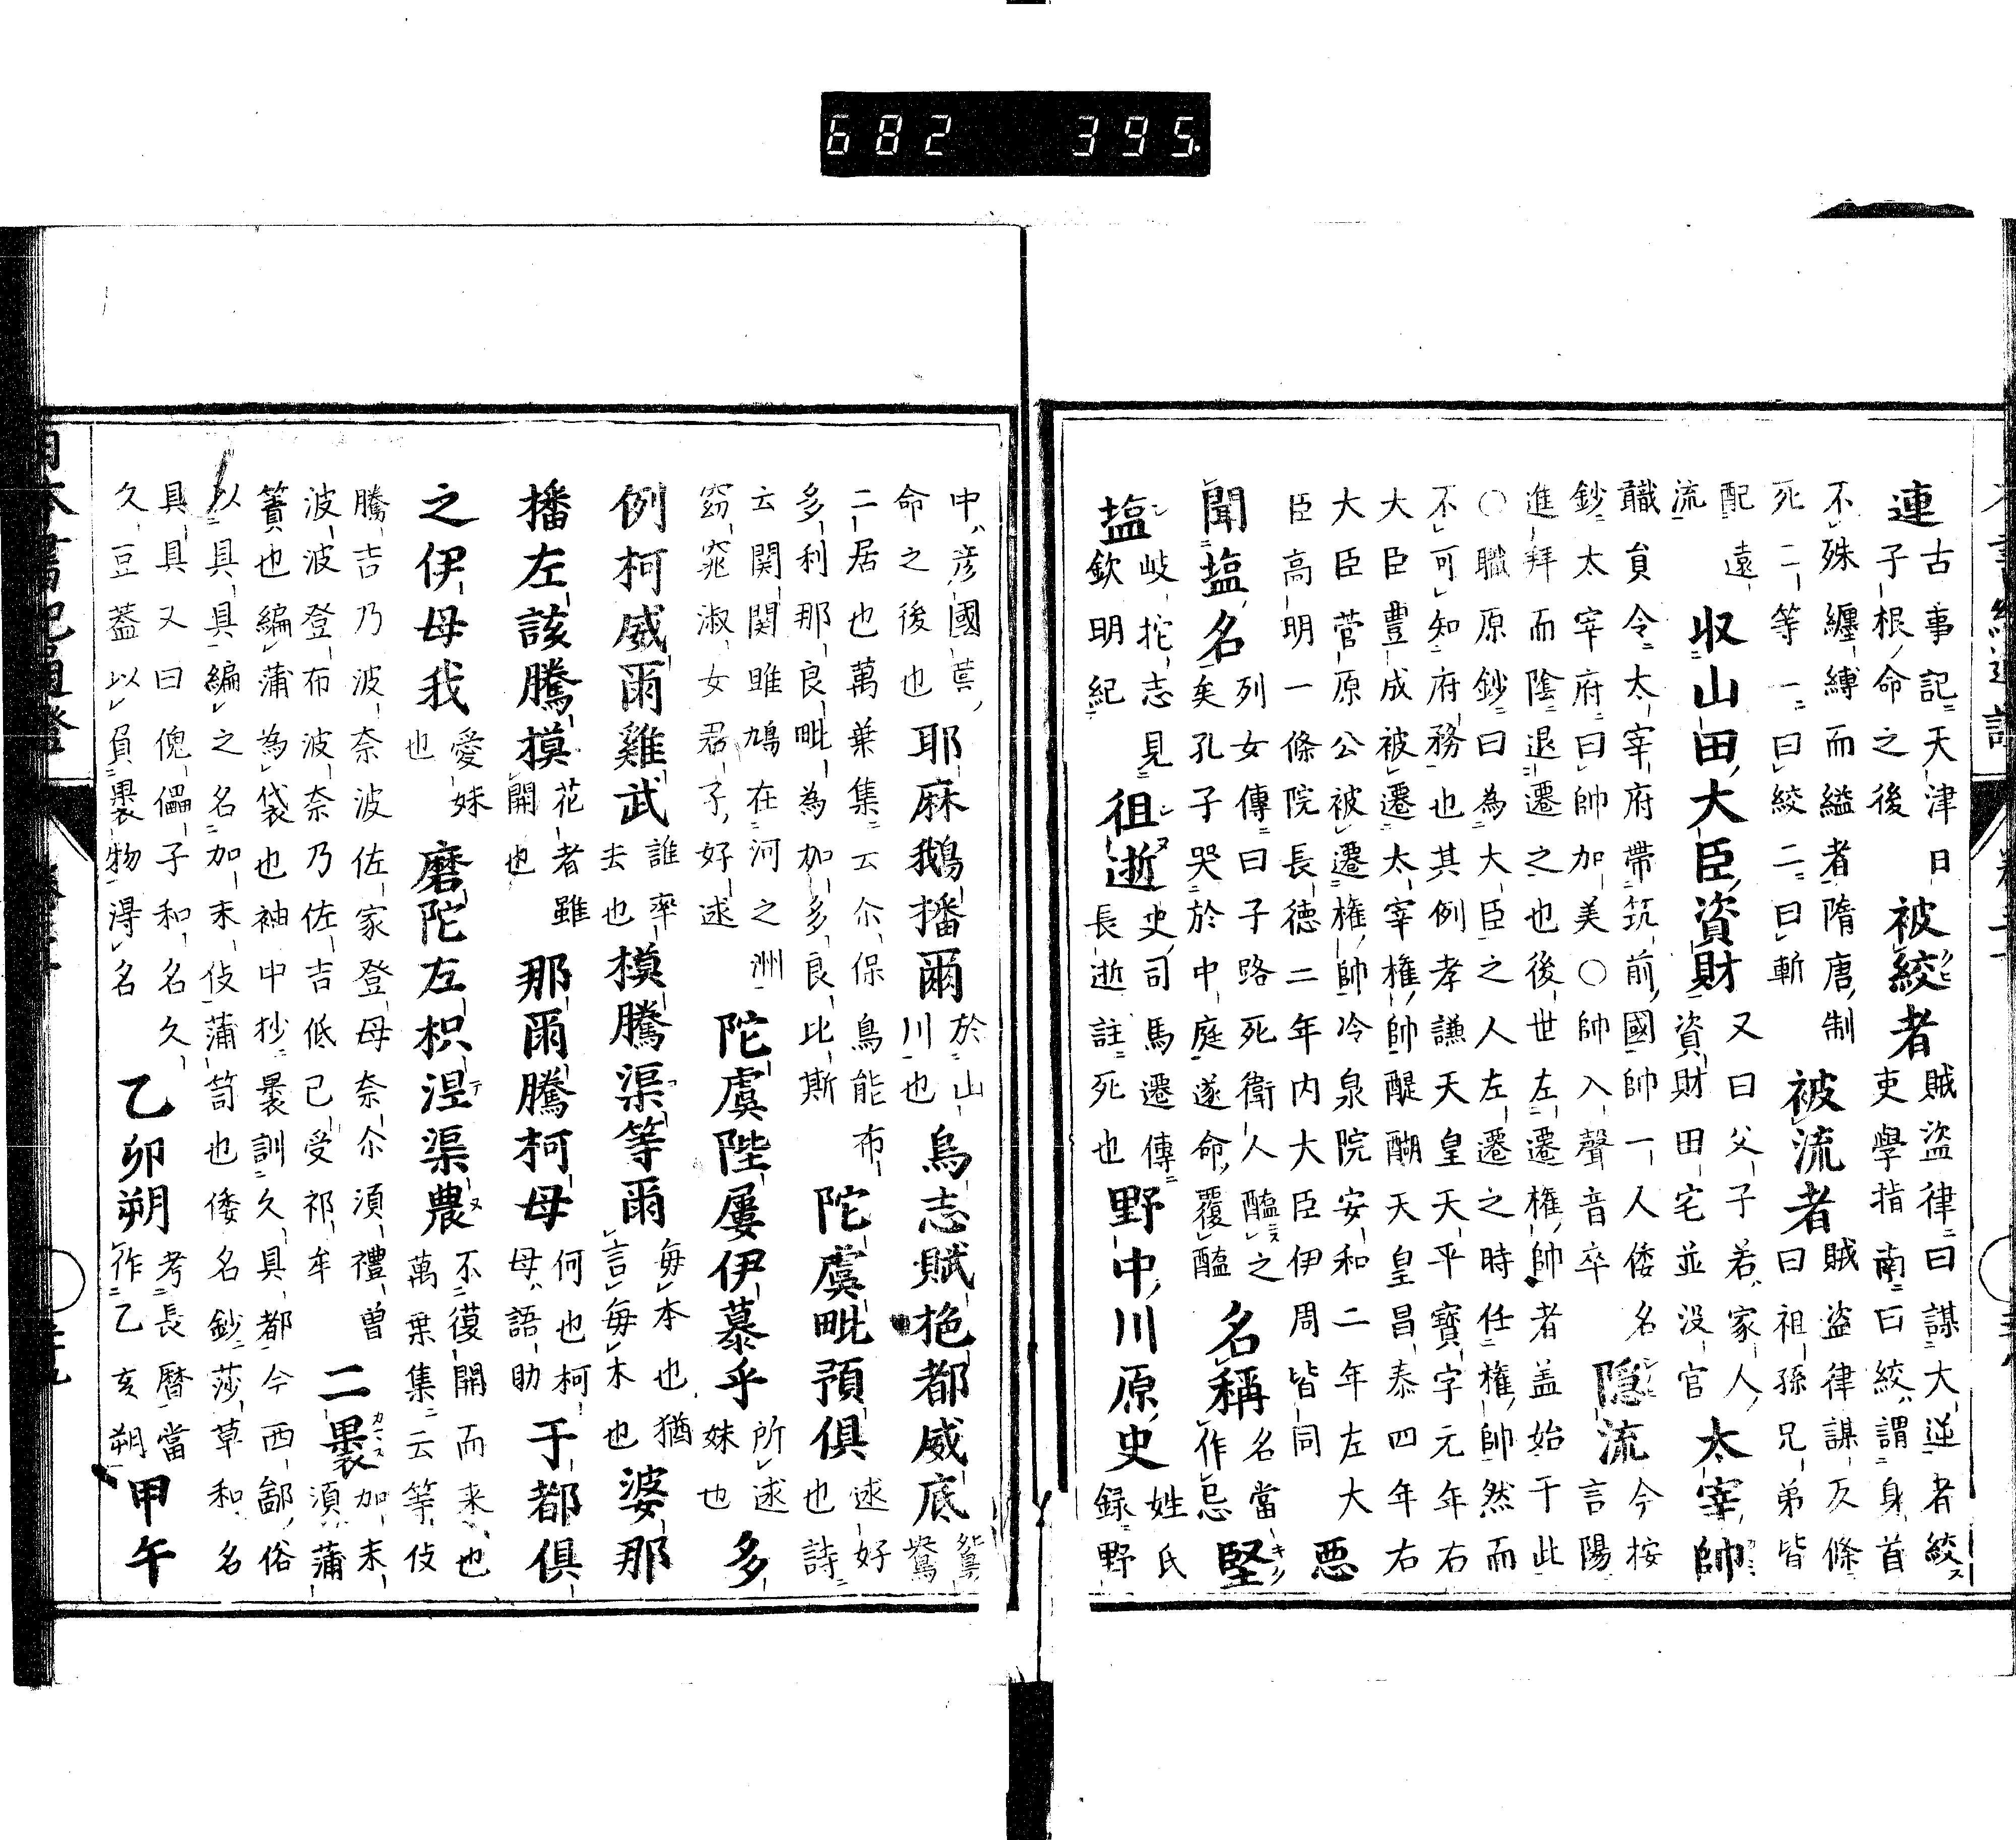 682 395.
連古事記天津日子根命之後被絞者賊盗律曰謀大逆者絞吏學指南曰絞謂身首
不殊纏縛而縊者隋唐制死二等一曰絞二曰斬被流者賊盗律謀反條曰祖孫兄弟皆
配遠流収山田大臣資財又曰父子若家人資財田宅並没官太宰帥
職員令太宰府帶筑前國帥一人倭名鈔太宰府曰帥加美○帥入聲音卒隠流今按言陽
進拜而陰退遷之也後世左遷權帥者盖始于此○職原鈔曰為大臣之人左遷之時任權帥然而
不可知府務也其例孝謙天皇天平寶字元年右大臣豊成被遷太宰權帥醍醐天皇昌泰四年右
大臣菅原公被遷權帥冷泉院安和二年左大臣高明一條院長徳二年内大臣伊周皆同悪
聞塩名列女傳曰子路死衛人醢之矣孔子哭於中庭遂命覆醢名稱名當作忌堅
塩岐拕志見欽明紀徂逝史司馬遷傳長逝註死也野中川原史姓氏録野
中彦國葺命之後也耶麻鵝播爾於山川也烏志賦拖都威底鴛鴦
二居也萬葉集云尒保鳥能布多利那良毗為加多良比斯陀虞毗預俱逑好也詩
云関関雎鳩在河之洲窈窕淑女君子好逑陀虞陛屢伊慕乎所逑妹也多
例柯威爾雞武誰率去也模騰渠等爾毎本也猶言毎木也婆那
播左該騰摸花者雖開也那爾騰柯母何也柯母語助于都俱
之伊母我愛妹也磨陀左枳涅渠農不復開而来也萬葉集云等伎
騰吉乃波奈波佐家登母奈尒須禮曽波波登布波奈乃佐吉低已受祁牟二褁加末須蒲
簀也編蒲為袋也袖中抄褁訓久具都今西鄙俗以具具編之名加末伎蒲笥也倭名鈔莎草和名
具具又曰傀儡子和名久久豆蓋以負褁物得名乙卯朔考長暦當作乙亥朔甲午